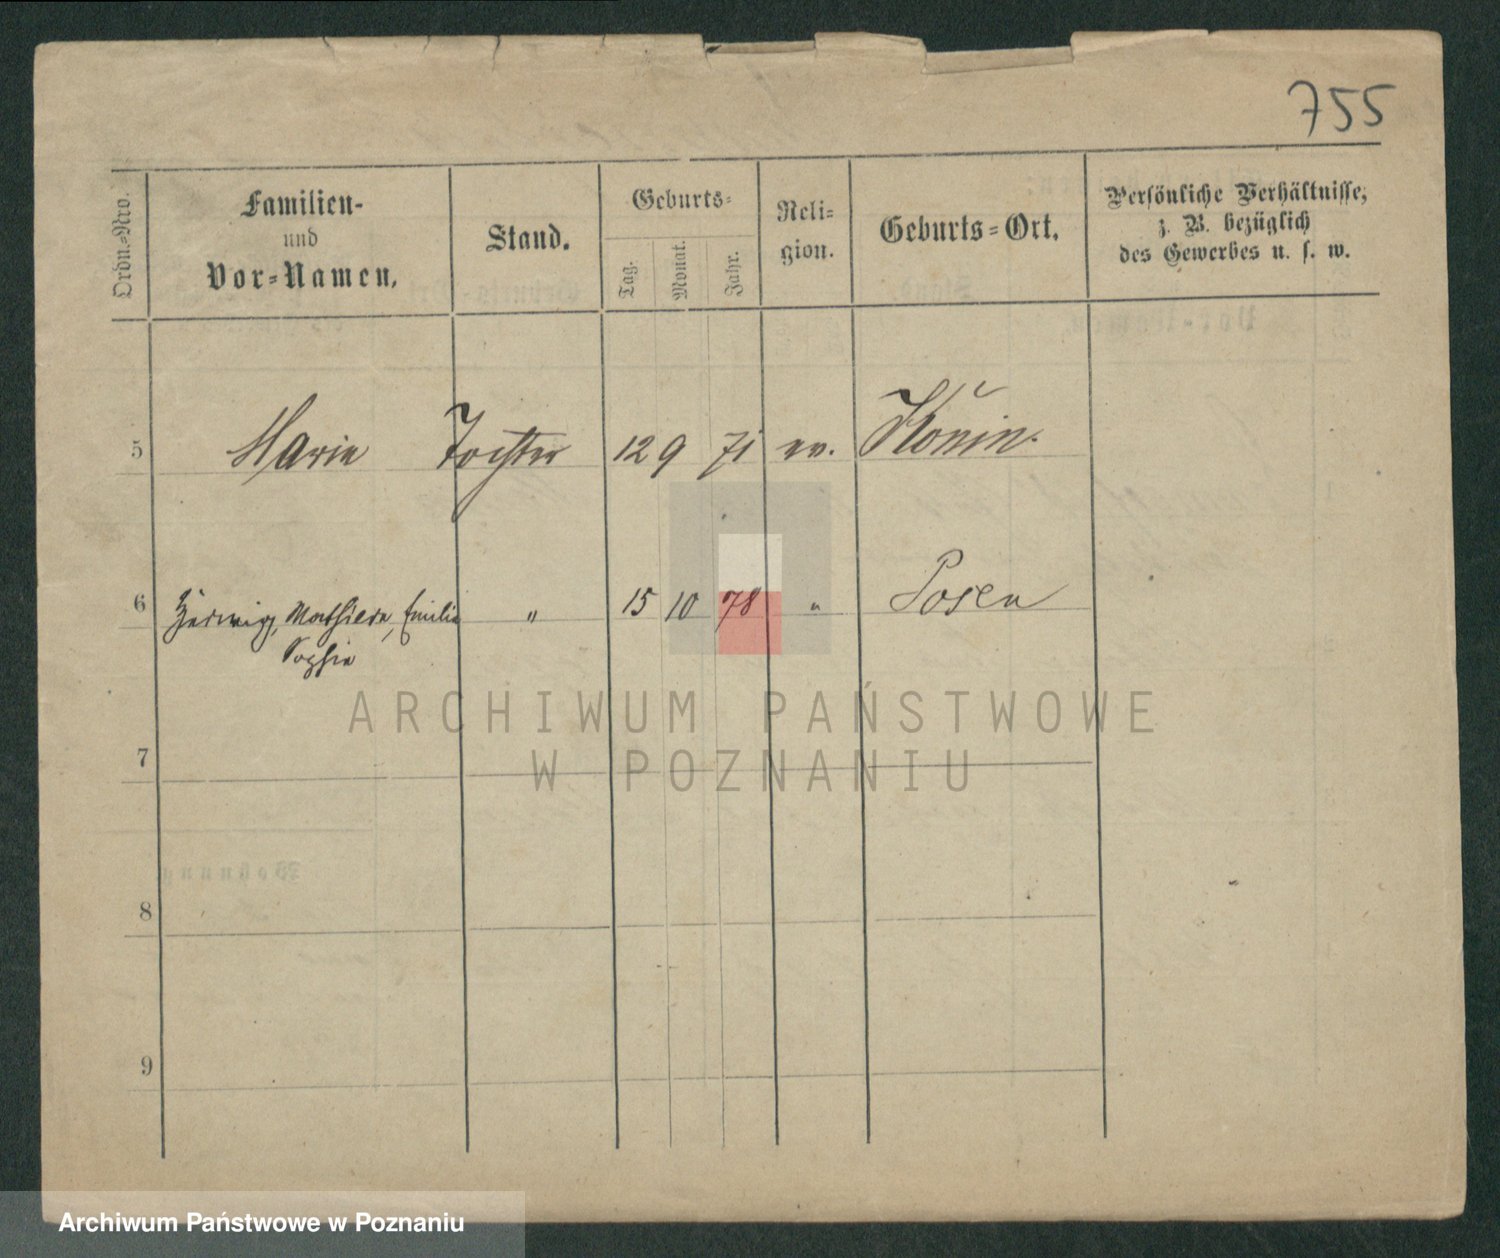 755
Ordn.-Nro.
Familien-
und
Vor-Namen.
Stand.
Geburts-
Tag.
Monat.
Jahr.
Reli-
gion.
Geburts-Ort.
Persönliche Verhältnisse,
z. B. bezüglich
des Gewerbes u. s. w.
5 Marie Tochter 12 9 71 ev. Konin.
6 Hedwig, Mathilde, Emilie " 15 10 78 " Posen
Sophie
ARCHIWUM PAŃSTWOWE
W POZNANIU
7
8
Wohnung
9
Archiwum Państwowe w Poznaniu